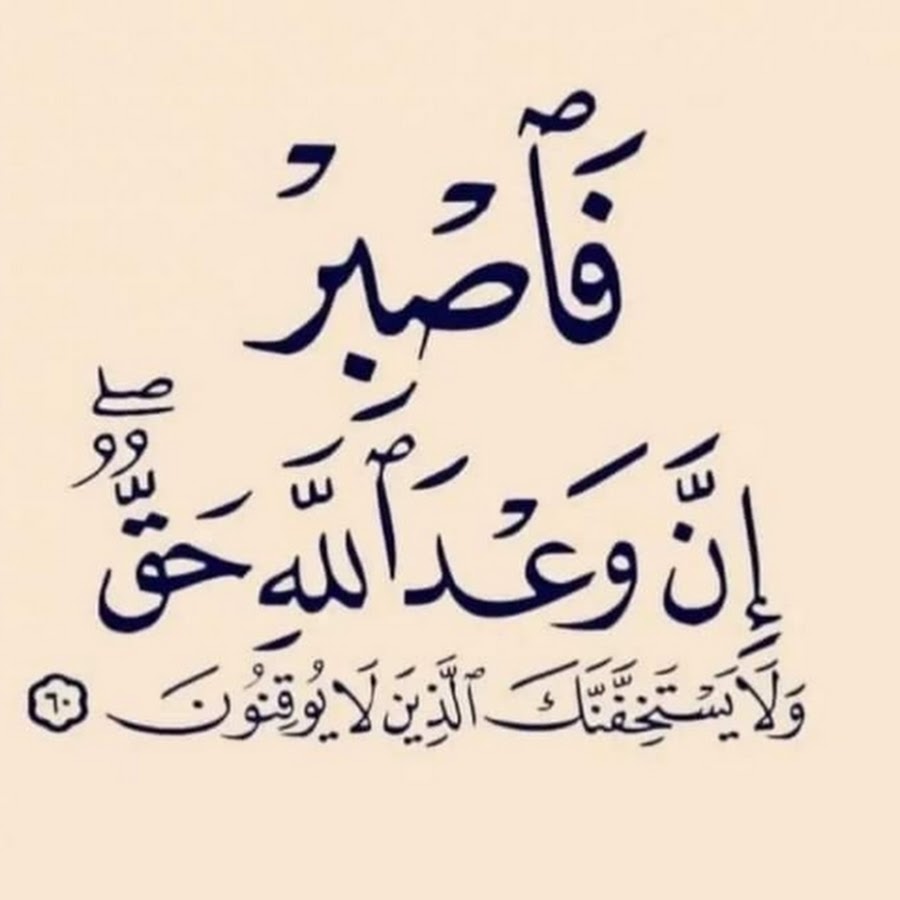 فَٱصْبِرْ
إِنَّ وَعْدَ ٱللَّهِ حَقٌّ ۖ
وَلَا يَسْتَخِفَّنَّكَ ٱلَّذِينَ لَا يُوقِنُونَ ٦٠